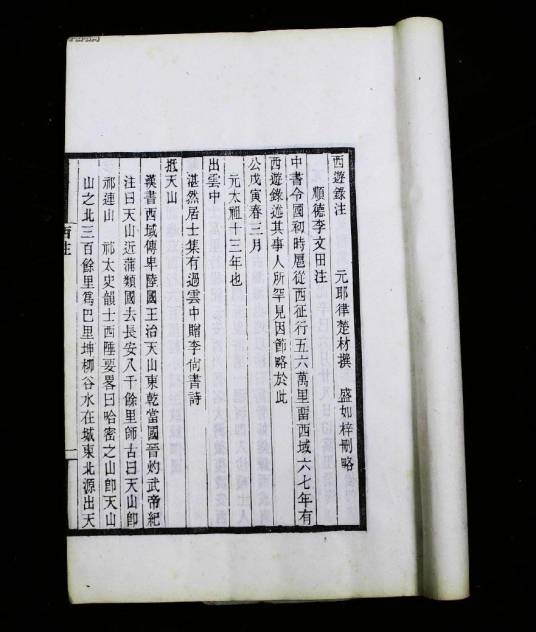 西遊錄注　元耶律楚材撰　盛如梓刪略
順德李文田注
中書令國初時扈從西征行五六萬里畱西域六七年有
西遊錄述其事人所罕見因節略於此
公戊寅春三月
元太祖十三年也
出雲中
湛然居士集有過雲中贈李尙書詩
抵天山
漢書西域傳卑陸國王治天山東乾當國晉灼武帝紀
注曰天山近蒲類國去長安八千餘里師古曰天山卽
祁連山　祁太史韻士西陲要畧曰哈密之山卽天山
山之北三百餘里爲巴里坤柳谷水在城東北源出天